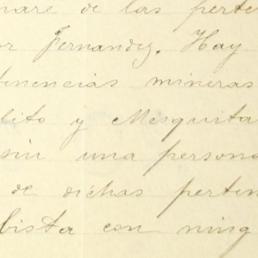 mare de las perte
or Fernandez. Hay
tinencias mineras
lito y Mesquita
sin una persona
de dichas pertin
lista con ning